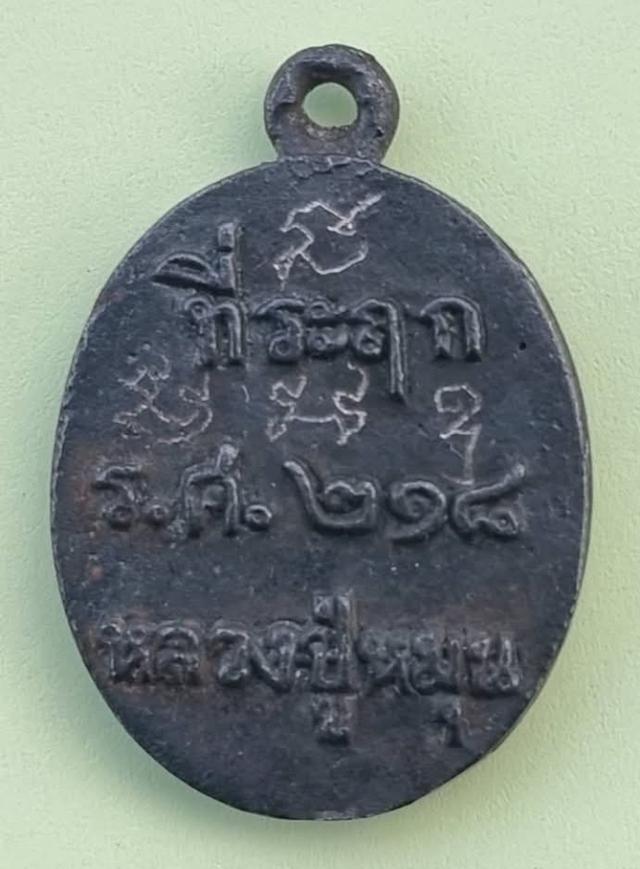 ที่ระฤก
ร.ศ. ๒๑๘
หลวงปู่หมุน